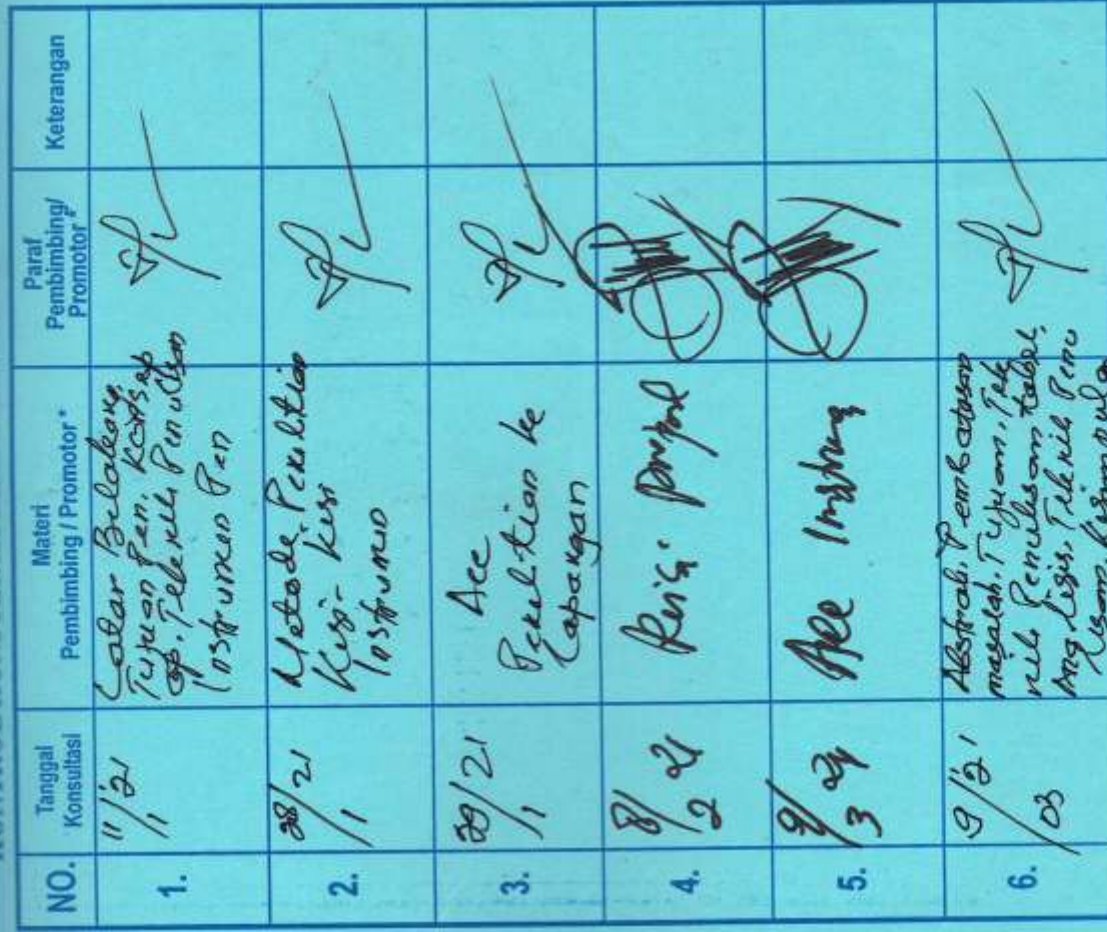 NO.
Tanggal
Konsultasi
Materi
Pembimbing / Promotor *
Paraf
Pembimbing/
Promotor*
Keterangan
1.
11/1 '21
Latar Belakang,
Tujuan Pen, Konsep
op. Teknik Penulisan
Instrumen Pen
2.
28/1 21
Metode Penelitian
Kisi-kisi
Instrumen
3.
29/1 21
Acc
Penelitian ke
Lapangan
4.
8/2 21
5.
9/3 21
Acc
6.
9/03 '21
Abstrak, Pembatasan
masalah, Tujuan, Tek
nik Penulisan tabel,